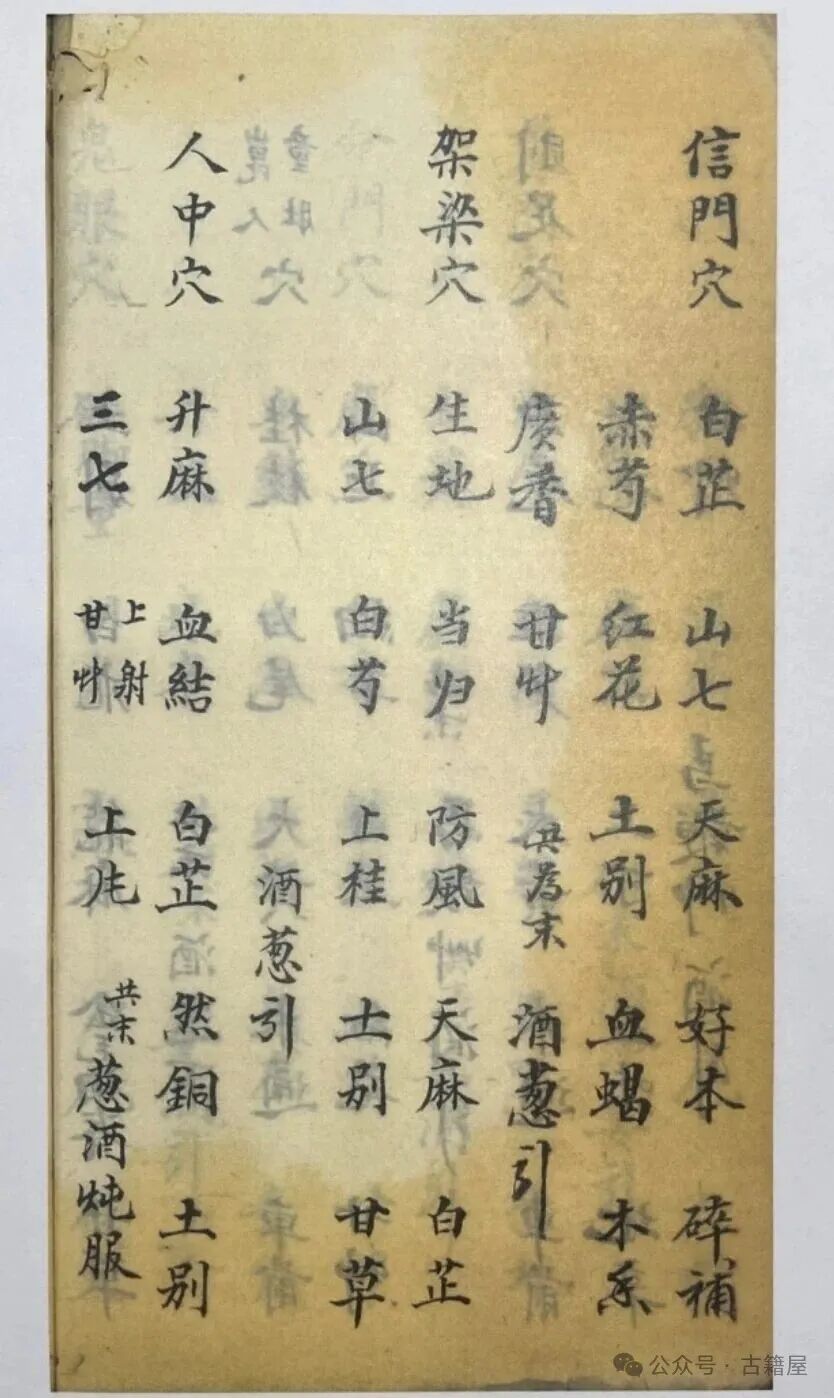 信門穴 白芷 山七 天麻 好本 碎補
赤芍 红花 土别 血蝎 木香
广香 甘艸 共為末 酒葱引
架梁穴 生地 当归 防風 天麻 白芷
山七 白芍 上桂 土别 甘草
酒葱引
人中穴 升麻 血結 白芷 然銅 土别
三七 上射 甘艸 上片 共末 葱酒炖服
公众号·古籍屋